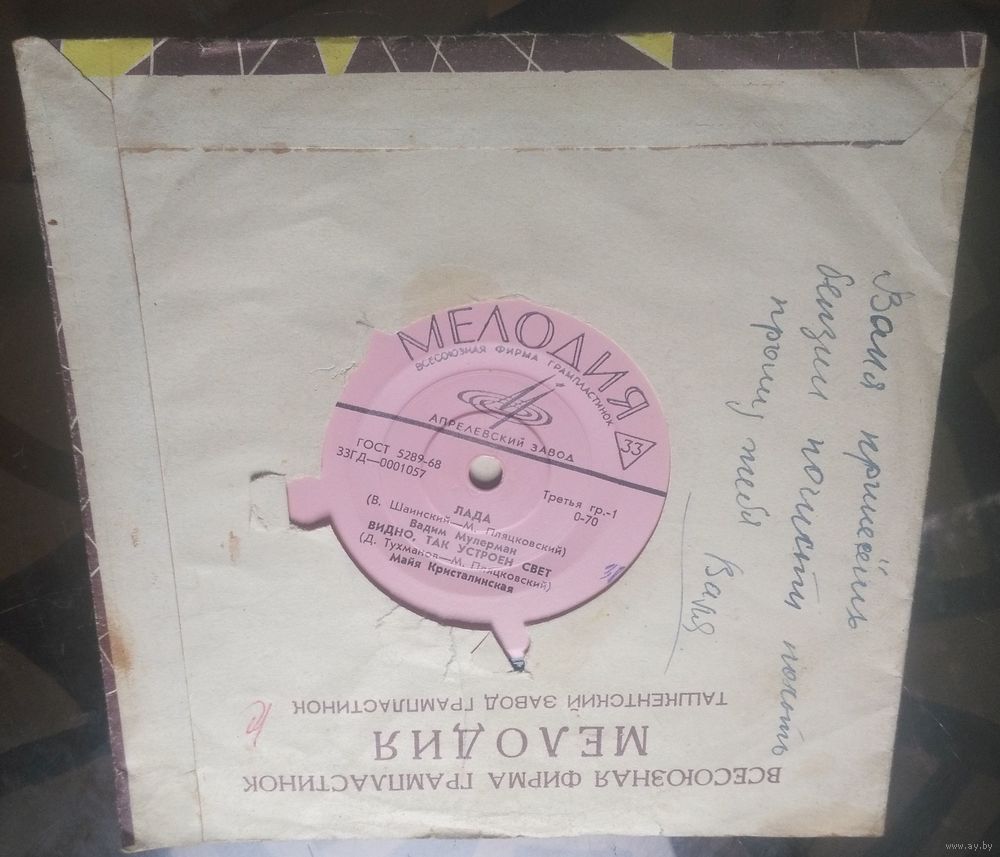 МЕЛОДИЯ
ВСЕСОЮЗНАЯ ФИРМА ГРАМПЛАСТИНОК
АПРЕЛЕВСКИЙ ЗАВОД
33
ГОСТ 5289-68
33ГД—0001057
Третья гр.-1
0-70
ЛАДА
(В. Шаинский—М. Пляцковский)
Вадим Мулерман
ВИДНО, ТАК УСТРОЕН СВЕТ
(Д. Тухманов—М. Пляцковский)
Майя Кристалинская
Ваня принесёшь
бензин почистить
прошу тебя
Валя
ВСЕСОЮЗНАЯ ФИРМА ГРАМПЛАСТИНОК
МЕЛОДИЯ
ТАШКЕНТСКИЙ ЗАВОД ГРАМПЛАСТИНОК
www.ay.by